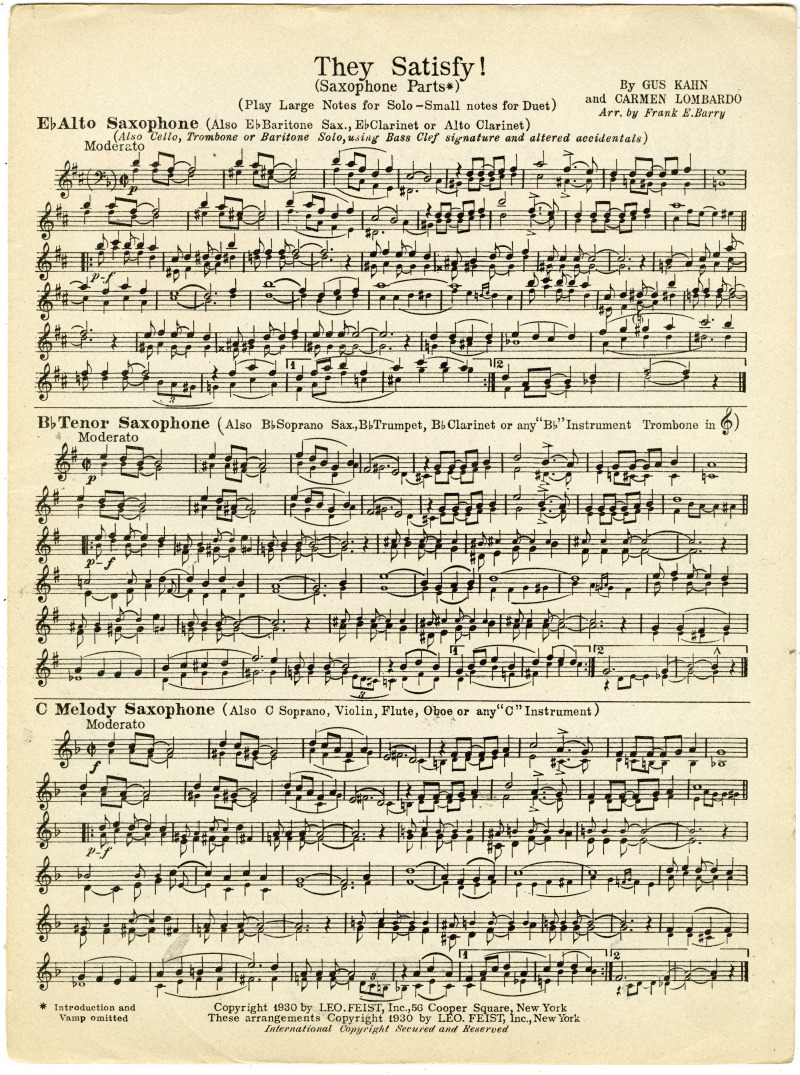 They Satisfy!
(Saxophone Parts*)
(Play Large Notes for Solo – Small notes for Duet)
By GUS KAHN
and CARMEN LOMBARDO
Arr. by Frank E. Barry
E♭ Alto Saxophone (Also E♭ Baritone Sax., E♭ Clarinet or Alto Clarinet)
(Also Cello, Trombone or Baritone Solo, using Bass Clef signature and altered accidentals)
Moderato
p
p-f
3
1
2
B♭ Tenor Saxophone (Also B♭ Soprano Sax., B♭ Trumpet, B♭ Clarinet or any "B♭" Instrument Trombone in 𝄞)
Moderato
p
p-f
1
2
3
C Melody Saxophone (Also C Soprano, Violin, Flute, Oboe or any "C" Instrument)
Moderato
f
p-f
1
2
3
* Introduction and
Vamp omitted
Copyright 1930 by LEO. FEIST, Inc., 56 Cooper Square, New York
These arrangements Copyright 1930 by LEO. FEIST, Inc., New York
International Copyright Secured and Reserved